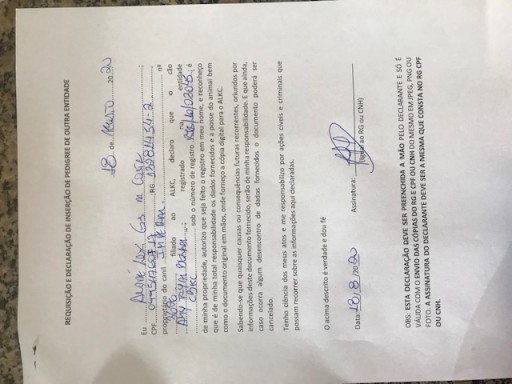 REQUISIÇÃO E DECLARAÇÃO DE INSERÇÃO DE PEDIGREE DE OUTRA ENTIDADE
18 de 20 20
Eu
CPF RG
proprietário do canil nº
filiado ao ALKC declaro que o cão
registrado na entidade
sob o número de registro é
de minha propriedade, autorizo que seja feito o registro em meu nome, e reconheço
que é de minha total responsabilidade os dados fornecidos e a posse do animal bem
como o documento original em mãos, onde forneço a cópia digital para o ALKC.
Sabendo-se que quaisquer causas ou consequências futuras recorrentes, oriundos por
informações deste documento fornecido, serão de minha responsabilidade. E que ainda,
caso ocorra algum desencontro de dados fornecidos, o documento poderá ser
cancelado.
Tenho ciência dos meus atos e me responsabilizo por ações cíveis e criminais que
possam recorrer sobre as informações aqui declaradas.
O acima descrito é verdade e dou fé
Data: 18, 8, 20 20 Assinatura:
RG ou CNH)
OBS: ESTA DECLARAÇÃO DEVE SER PREENCHIDA A MÃO PELO DECLARANTE E SÓ É
VÁLIDA COM O ENVIO DAS CÓPIAS DO RG E CPF OU CNH DO MESMO EM JPEG, PNG OU
FOTO. A ASSINATURA DO DECLARANTE DEVE SER A MESMA QUE CONSTA NO RG CPF
OU CNH.